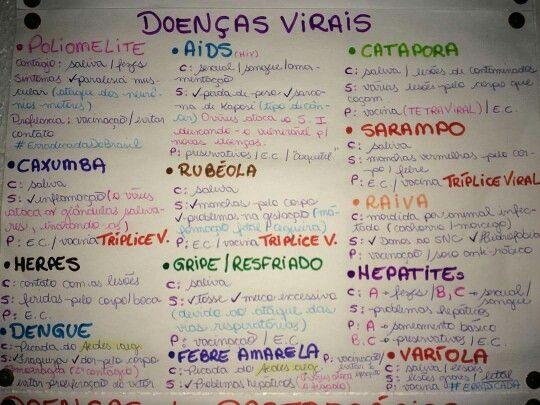 DOENÇAS VIRAIS
• POLIOMELITE
Contágio: saliva / fezes
Sintomas ✓ paralisia mus-
cular (ataque dos neurô-
nios motores)
Profilaxia: vacinação / evitar
contato
# Erradicada do Brasil
• CAXUMBA
C: saliva
S: ✓ inflamação (o vírus
ataca as glândulas saliva-
res, inchando-as)
P: E.C / vacina TRÍPLICE V.
• HERPES
C: contato com as lesões
S: feridas pelo corpo/boca
P: E.C.
• DENGUE
C: Picada do Aedes aeg.
S: ✓ fraqueza ✓ dor pelo corpo
(2º contágio)
evitar proliferação do vetor
• AIDS (HIV)
C: sexual / sangue / ama-
mentação
S: ✓ perda de peso ✓ sarco-
ma de Kaposi (tipo de cân-
cer) O vírus ataca o S. I
deixando-o vulnerável p/
novas doenças.
P: preservativos / E.C / "coquetel"
• RUBÉOLA
C: saliva
S: ✓ manchas pelo corpo
✓ problemas na gestação (má
formação fetal / cegueira)
P: E.C / vacina TRÍPLICE V.
• GRIPE / RESFRIADO
C: saliva
S: ✓ tosse ✓ muco excessivo
(devido ao ataque das
vias respiratórias)
P: vacinação / E.C
• FEBRE AMARELA
C: Picada do Aedes aeg.
S: ✓ Problemas hepáticos (vírus ataca
o fígado)
P: vacinação/
evitar
• CATAPORA
C: saliva / lesões de contaminados
S: várias lesões pelo corpo que
coçam
P: vacina (TETRAVIRAL) / E.C.
• SARAMPO
C: saliva
S: manchas vermelhas pelo cor-
po / febre
P: E.C / vacina TRÍPLICE VIRAL
• RAIVA
C: mordida por animal infec-
tado (cachorro / morcego)
S: ✓ Danos ao SNC ✓ Hidrofobia
P: vacinação / soro anti-rábico
• HEPATITEs
C: A → fezes / B, C → sexual /
sangue
S: problemas hepáticos
P: A → saneamento básico
B, C → preservativos / E.C
• VARÍOLA
C: saliva / lesões
S: lesões graves / letal
P: vacina # ERRADICADA